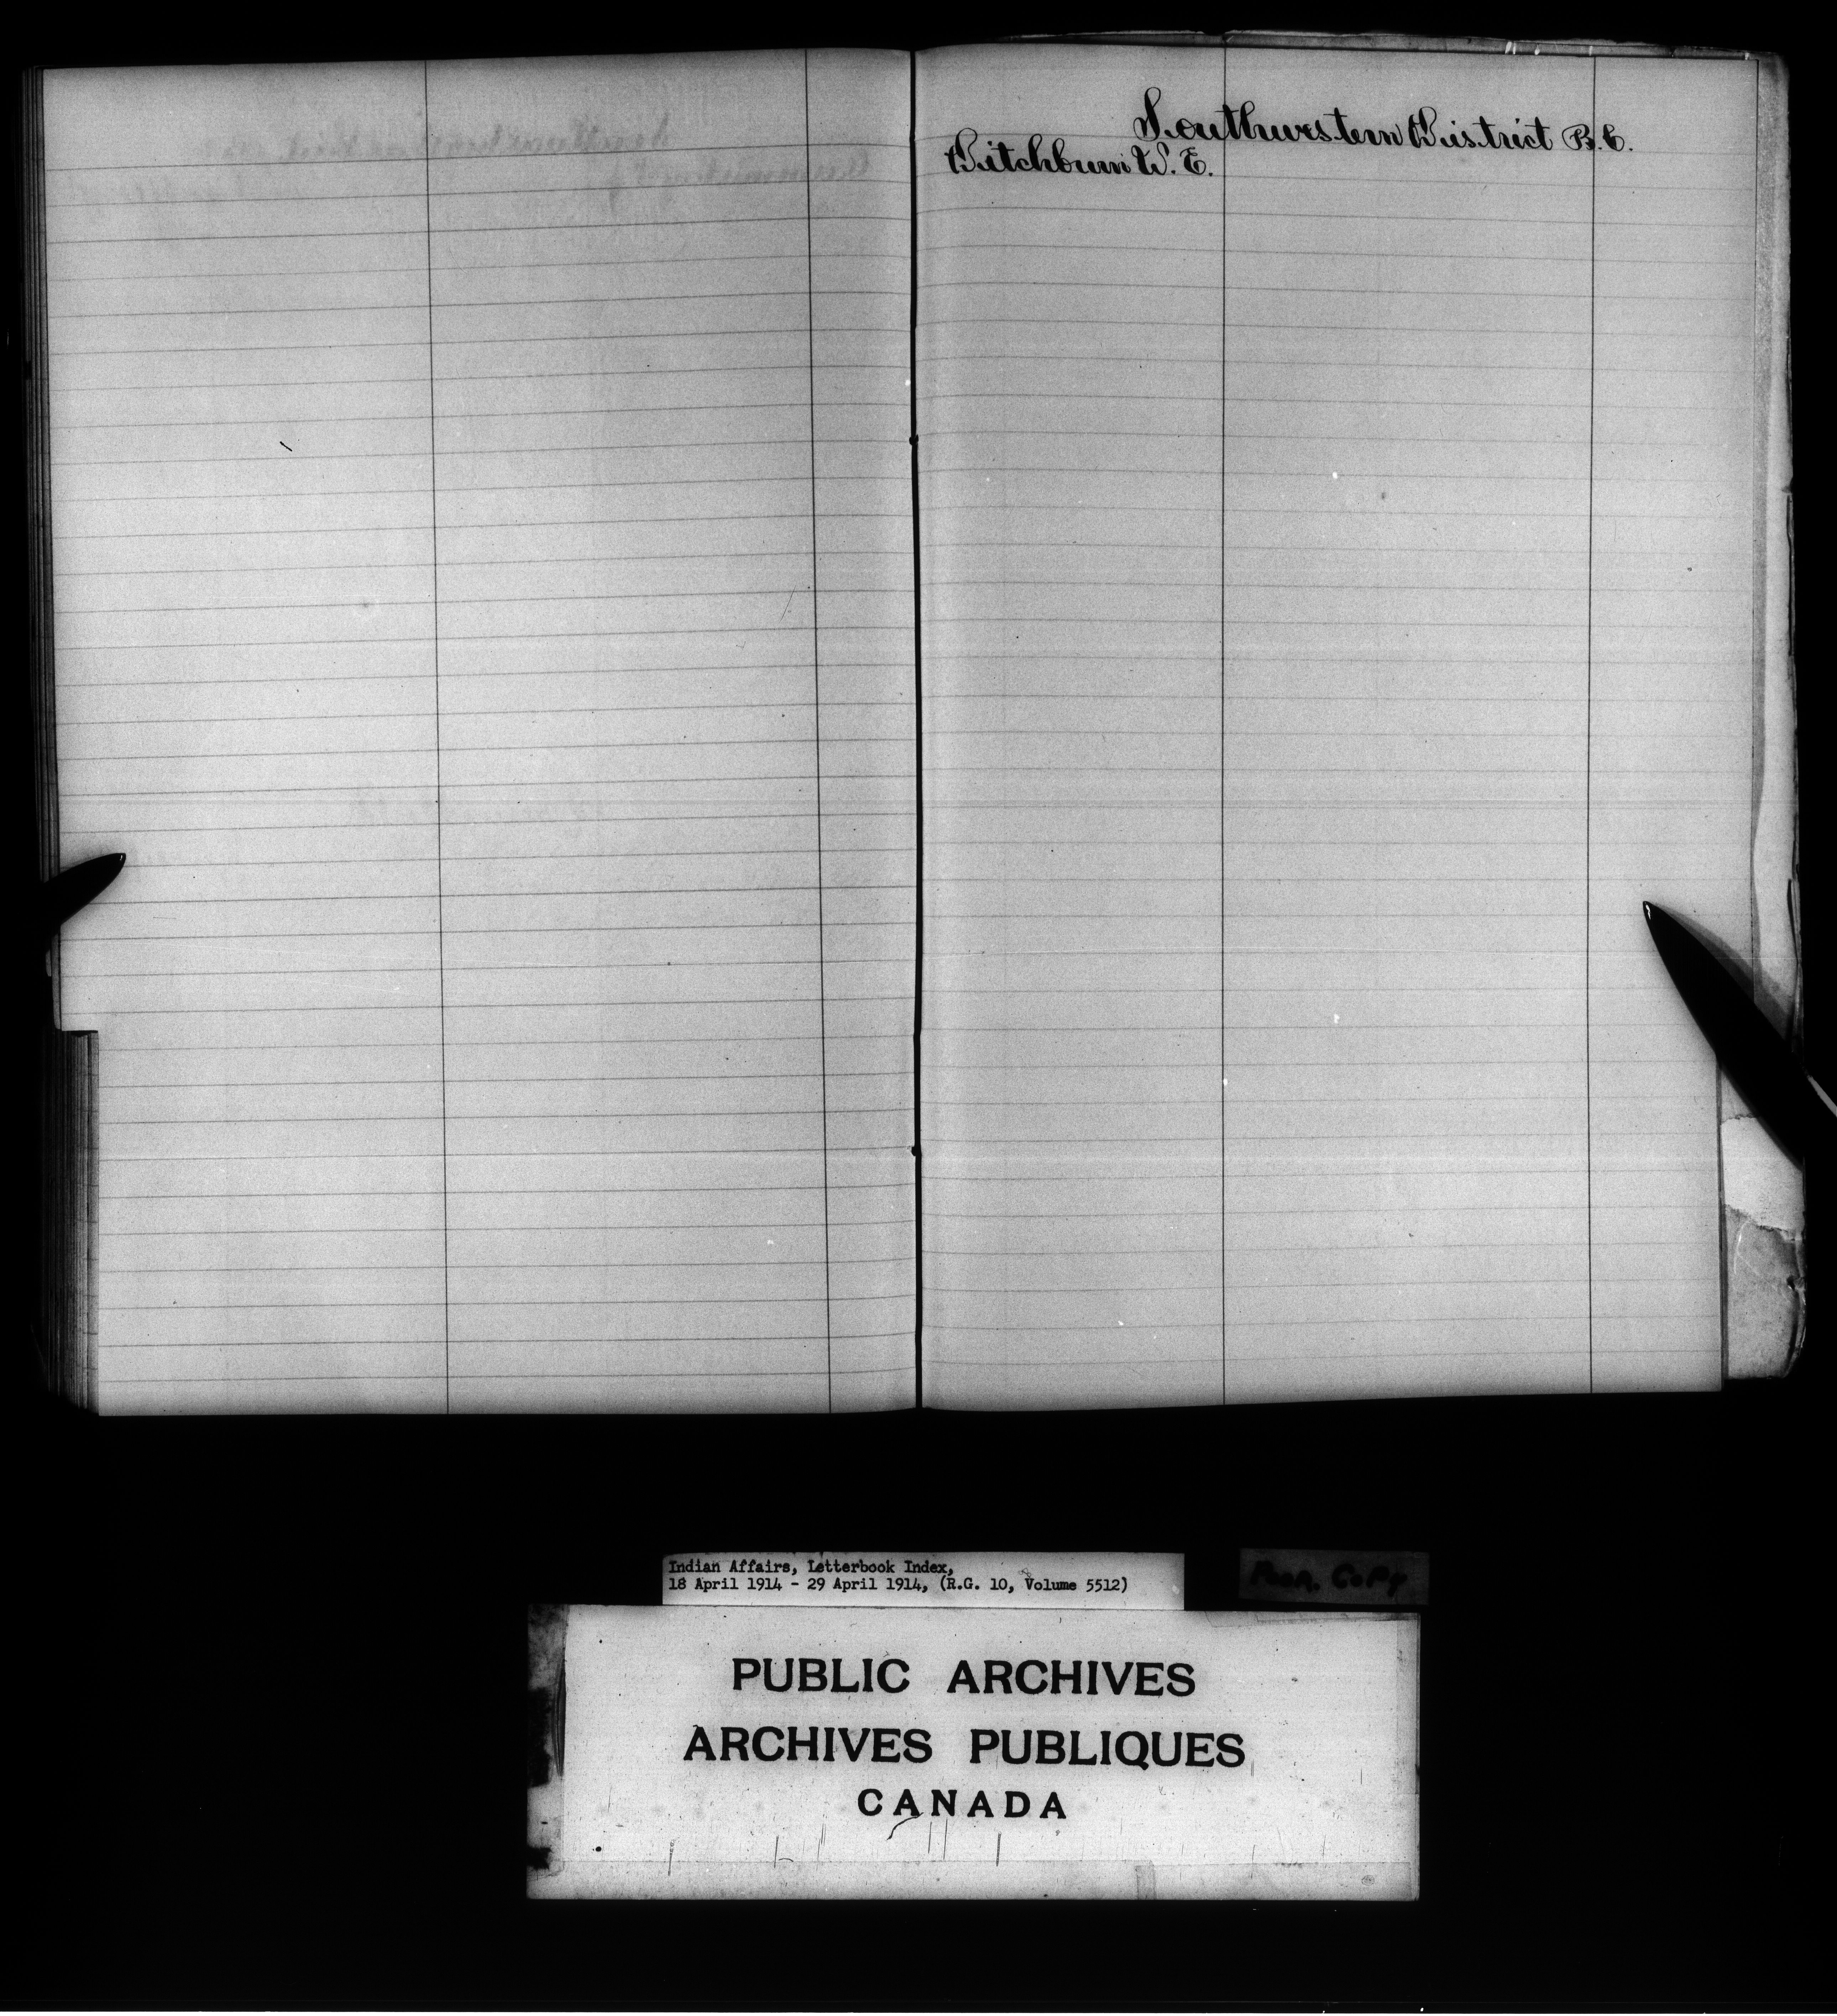 Southwestern District B.C.
Ditchburn W. E.
Indian Affairs, Letterbook Index,
18 April 1914 - 29 April 1914, (R.G. 10, Volume 5512)
Poor. Copy
PUBLIC ARCHIVES
ARCHIVES PUBLIQUES
CANADA